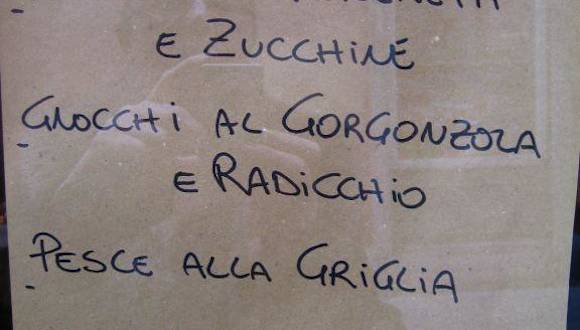 e Zucchine
Gnocchi al Gorgonzola
e Radicchio
Pesce alla Griglia